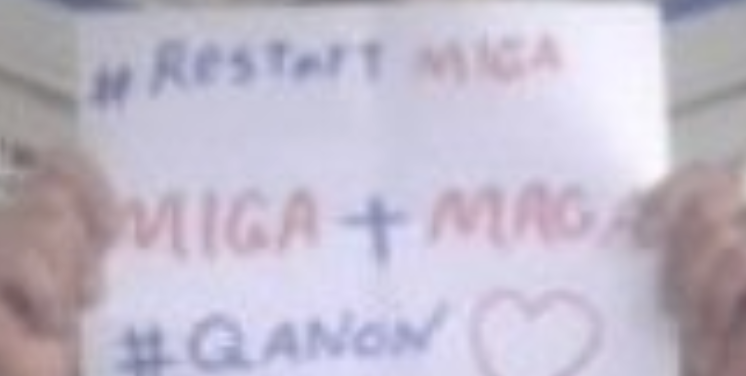 #RESTART MIGA
MIGA + MAGA
#QANON